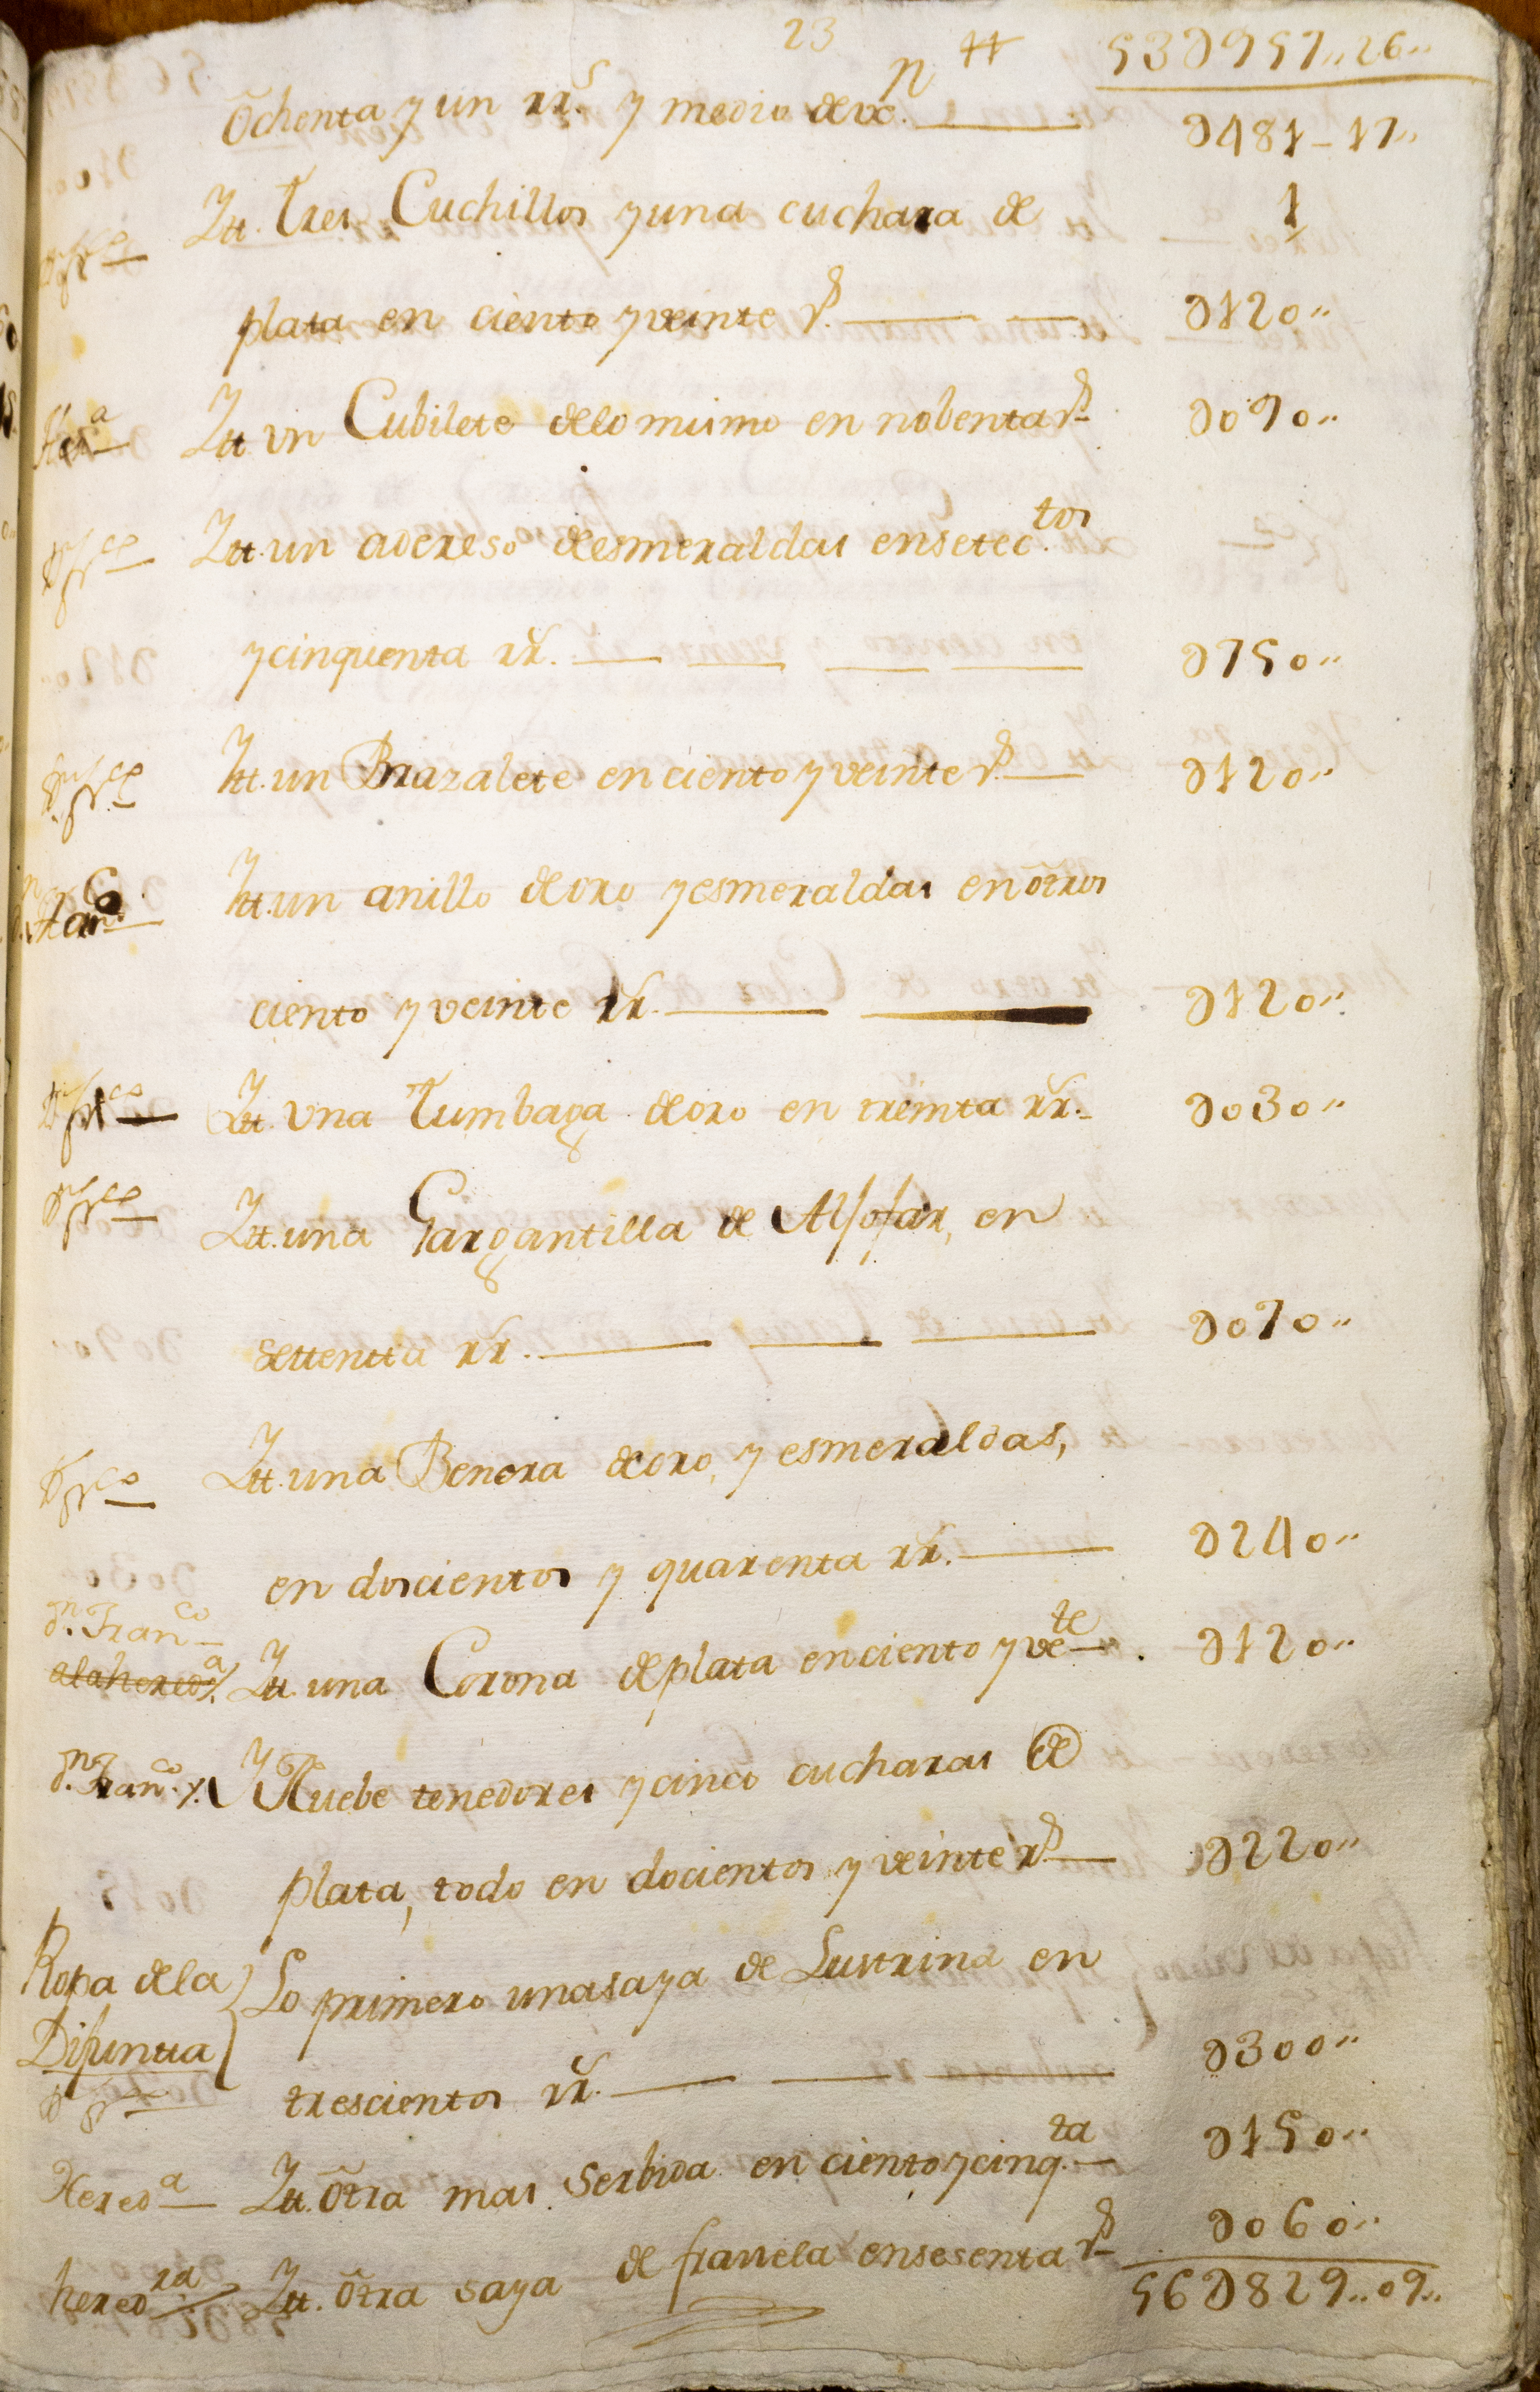 23
n 44 53∂957,,26,,
Ochenta y un rr.s y medio de vo. ∂481-17,,
Ytt. Tres Cuchillos y una cuchara de 1
plata en ciento y veinte rs. ∂120,,
Her.a Ytt vn Cubilete delo mismo en nobenta rs ∂090,,
Ytt. un adereso de esmeraldas en setec.tos
y cinquenta rr. ∂750,,
Ytt. un Brazalete en ciento y veinte rs. ∂120,,
Ytt. un anillo de oro y esmeraldas en otros
ciento y veinte rr. ∂120,,
Ytt. Vna Tumbaga de oro en treinta rr. ∂030,,
Ytt. una Gargantilla de Alfofar, en
settentta rr. ∂070,,
Ytt. una Benera de oro, y esmeraldas,
en doscientos y quarenta rr. ∂240,,
D.n Fran.co
alahered.a Ytt. una Corona de plata en ciento y ve.te ∂120,,
D.n Fran.co Y Nuebe tenedores y cinco cucharas de
plata, todo en docientos y veinte rs ∂220,,
Ropa dela Lo primero una saya de Lustrina en
Difuntta
trescientos rr. ∂300,,
Hered.a Ytt. Otra mas Serbida en ciento y cinq.ta ∂150,,
hered.ra Ytt. Otra saya de franela en sesenta rs ∂060,,
56∂829,,09,,